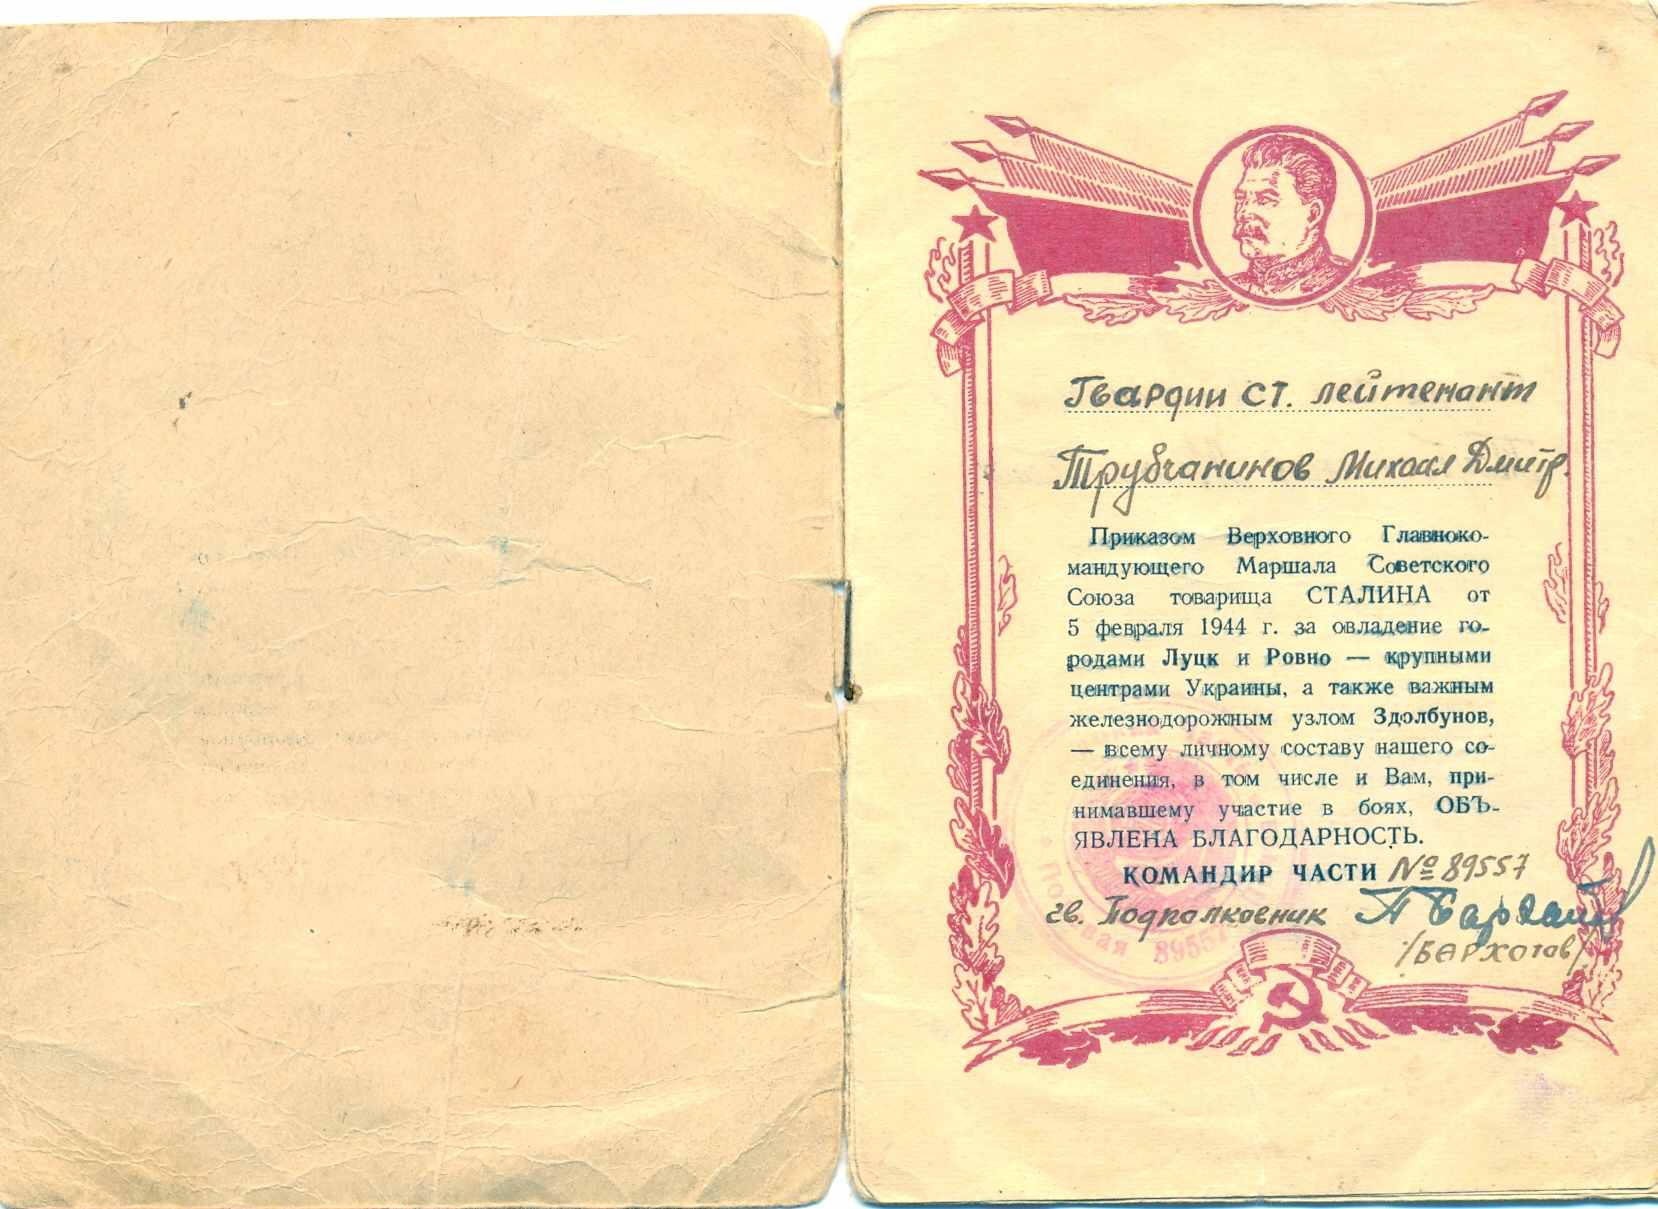 Гвардии ст. лейтенант
Трубчанинов Михаил Дмитр.
Приказом Верховного Главноко-
мандующего Маршала Советского
Союза товарища СТАЛИНА от
5 февраля 1944 г. за овладение го-
родами Луцк и Ровно — крупными
центрами Украины, а также важным
железнодорожным узлом Здолбунов,
— всему личному составу нашего со-
единения, в том числе и Вам, при-
нимавшему участие в боях, ОБЪ-
ЯВЛЕНА БЛАГОДАРНОСТЬ.
КОМАНДИР ЧАСТИ № 89557
гв. Подполковник
Полевая 89557